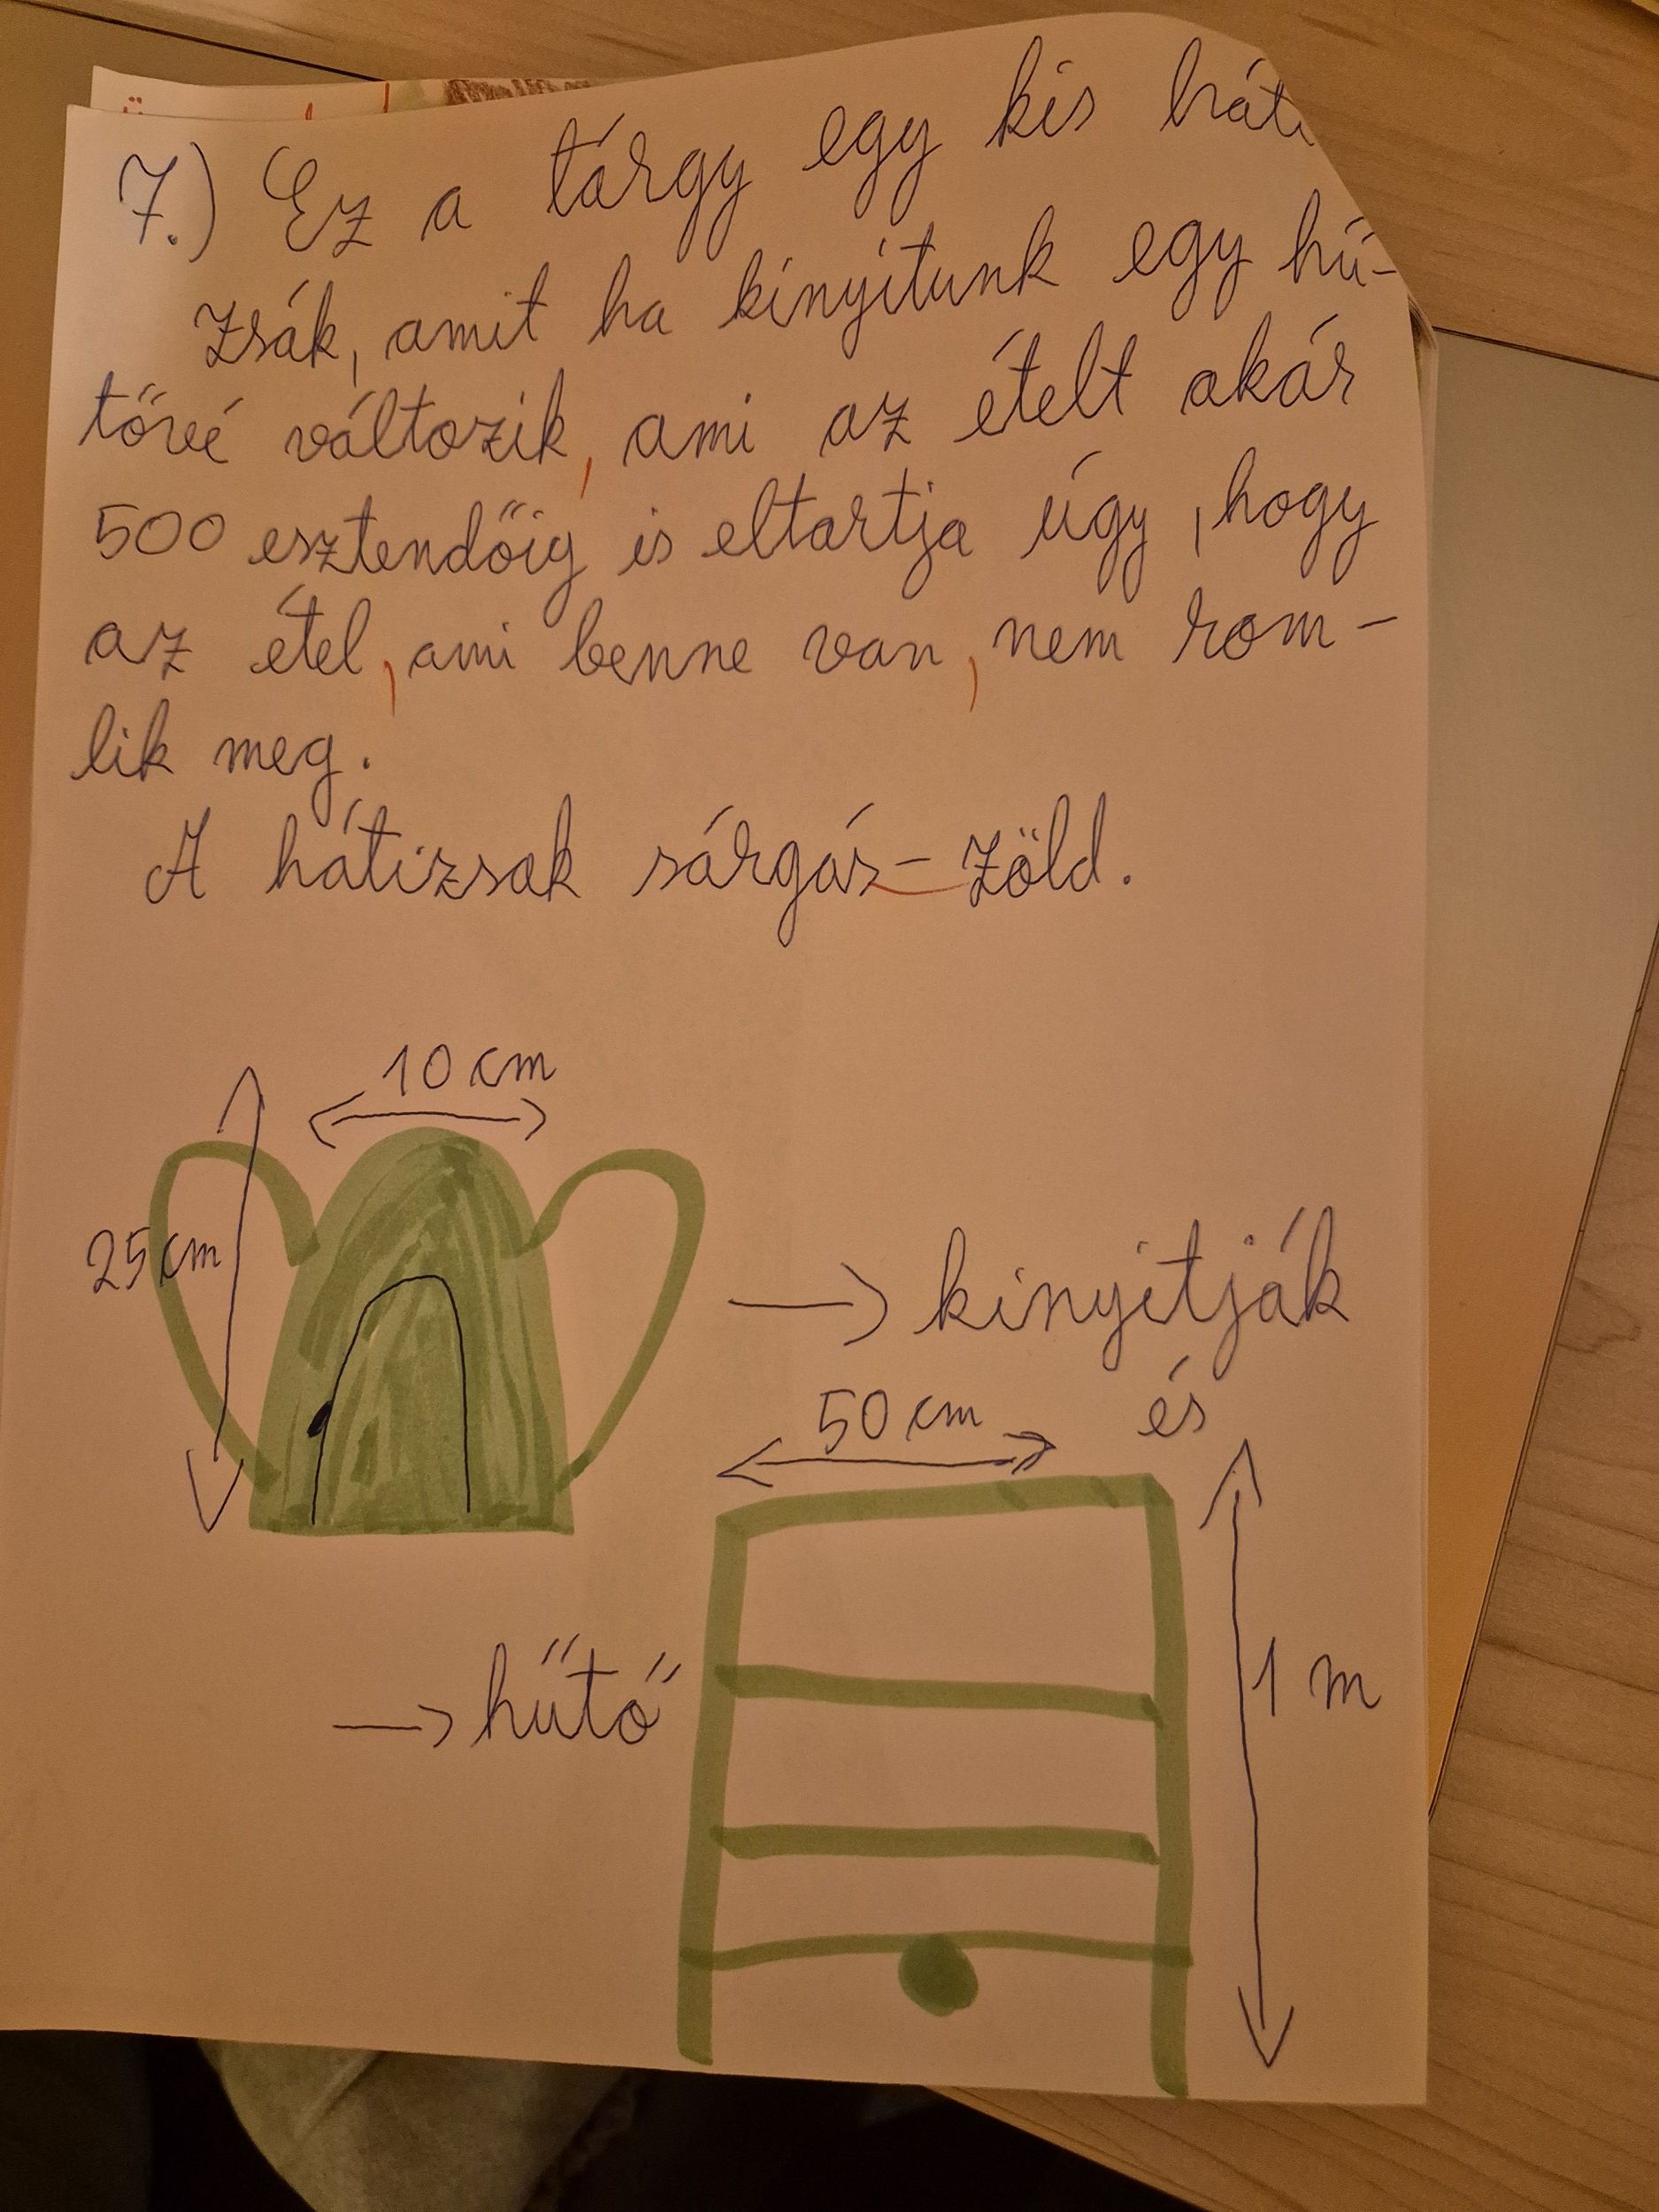 7.) Ez a tárgy egy kis háti
zsák, amit ha kinyitunk egy hű-
tővé változik, ami az ételt akár
500 esztendőig is eltartja úgy, hogy
az étel, ami benne van, nem rom-
lik meg.
A hátizsak sárgás-zöld.
10 cm
25 cm
→ kinyitják
és
50 cm
→ hűtő
1 m